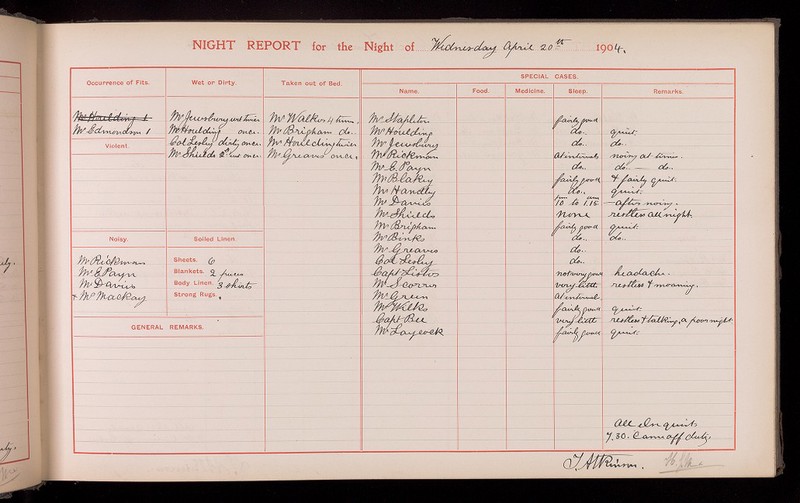 NIGHT REPORT for the Night of Wednesday April 20th 1904.
Occurrence of Fits.
Mr Houlding 1
Mr Edmondson 1
Violent.
Noisy.
Mr Rickman
Mr E Payn
Mr Davies
+ Mr Mackay
Wet or Dirty
Mr Jewsbury wet twice
Mr Houlding once.
Col Lesley dirty once.
Mr Shields 2 wet once.
Soiled Linen.
Sheets. 6
Blankets. 2 pieces
Body Linen. 3 shirts
Strong Rugs.
GENERAL REMARKS.
Taken out of Bed.
Mr Walker 4 times.
Mr Brigham do.
Mr Houlding twice
Mr Greaves once.
SPECIAL CASES.
Name. Food. Medicine. Sleep. Remarks.
Mr Stapleton fairly good
Mr Houlding do. quiet.
Mr Jewsbury do. do.
Mr Rickman at intervals noisy at times.
Mr E Payn do. do. do.
Mr Blakey fairly good & fairly quiet.
Mr Handley do. quiet.
Mr Davies 10 to 1.15 after noisy.
Mr Shields none restless all night.
Mr Brigham fairly good quiet.
Mr Binks do. do.
Mr Greaves do.
Col Lesley do.
Capt not very good headache.
Mr Scorrer very little restless & moaning.
Mr Green at interval
Mr Wilks fairly good quiet.
Capt Bell very little restless & talking, a poor night
Mr Laycock fairly good quiet.
all In quiet
7.30. Came off duty.
J Atkinson.